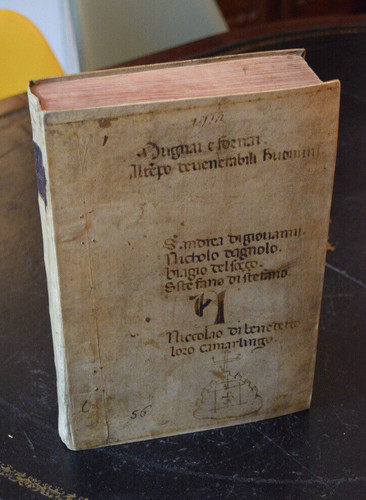 Mugnai e fornai
Altēpo devenerabili huomini
S. andrea digiovanni.
Nicholo dagnolo.
biagio del
S stefano di stefano.
Niccolao di benedetto
loro camarlingo.
56